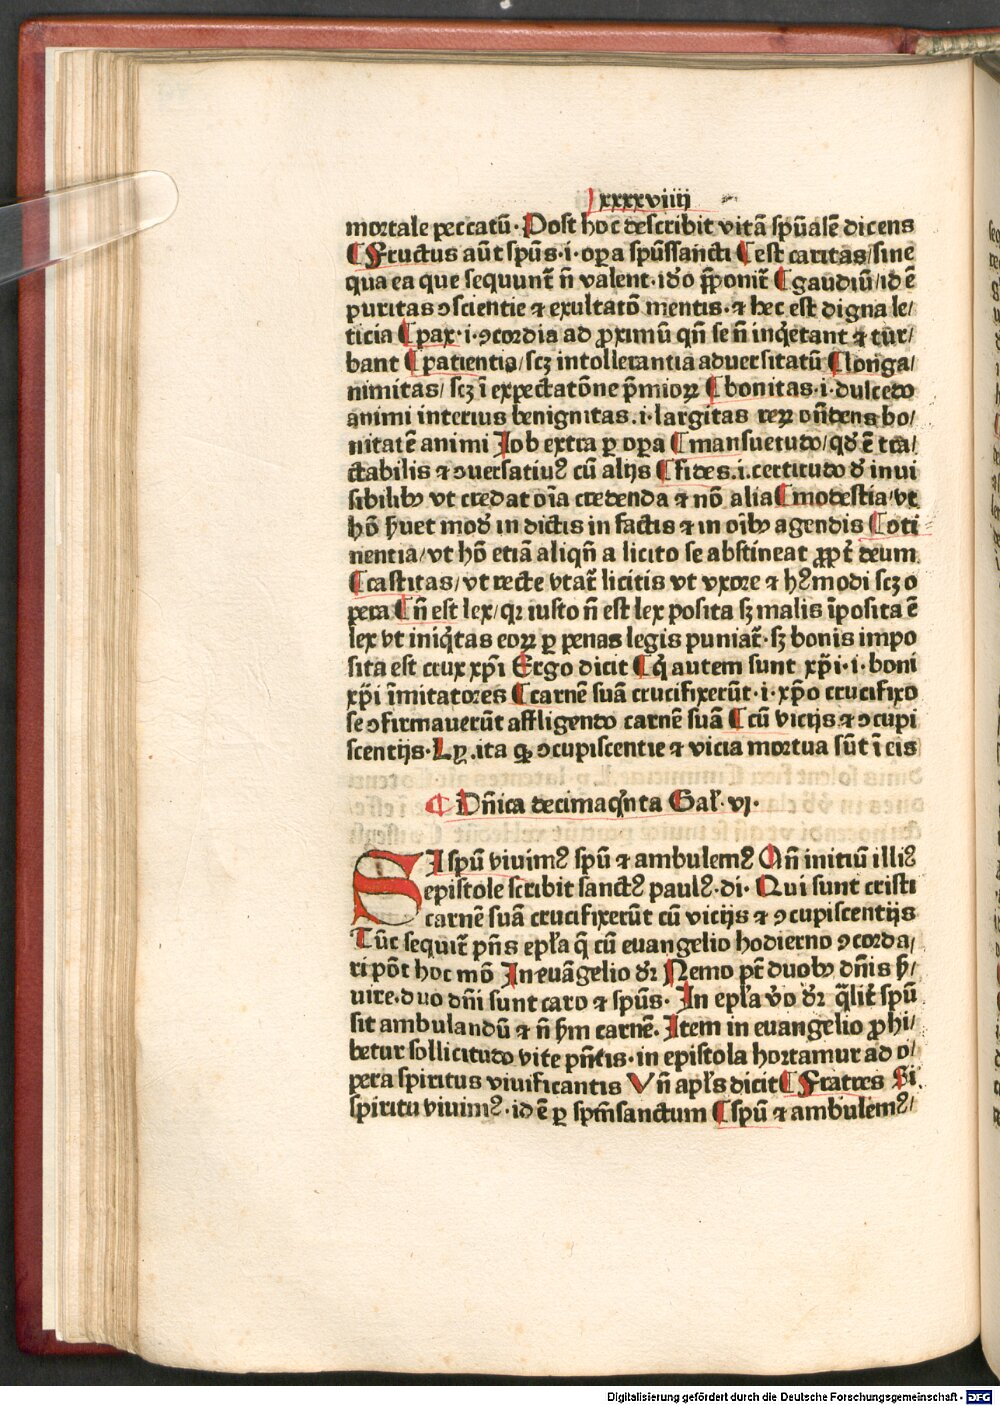 lxxxxviiij
mortale peccatū· Post hoc describit vitā spūalē dicens
¶Fructus aūt spūs·i·opa spūssancti ¶est caritas/sine
qua ea que sequunt̃ ñ valent·iđo p̄ponit̃ ¶gaudiū/id ē
puritas ↄscientie ⁊ exultatō mentis·⁊ hec est digna le/
ticia ¶pax·i·ↄcordia ad ꝓximū qñ se ñ inq̇etant ⁊ tur/
bant ¶patientia/scꝫ intollerantia aduersitatū ¶longa/
nimitas/scꝫ ī expectatōne p̄mioꝝ ¶bonitas·i·dulcedo
animi interius benignitas.i·largitas reꝝ oñdens bo/
nitatē animi Job extra ꝑ opa ¶mansuetudo/qđ ē tra/
ctabilis ⁊ ↄuersatiuꝰ cū alijs ¶fides.i.certitudo đ inui
sibilibꝫ vt credat oīa credenda ⁊ nō alia ¶modestia/vt
hō ẜuet mođ in dictis in factis ⁊ in oībꝫ agendis ¶ↄti
nentia/vt hō etiā aliqñ a licito se abstineat ꝓpt̃ deum
¶castitas/vt recte vtat̃ licitis vt vxore ⁊ hꝰmodi scꝫ o
pera ¶ñ est lex/qꝛ iusto ñ est lex posita sꝫ malis īposita ē
lex vt iniq̇tas eoꝝ ꝑ penas legis puniat̃·sꝫ bonis impo
sita est crux xp̄i Ergo dicit ¶q̇ autem sunt xp̄i·i·boni
xp̄i īmitatores ¶carnē suā crucifixerūt·i·xp̄o crucifixo
se ↄfirmauerūt affligendo carnē suā ¶cū vicijs ⁊ ↄcupi
scentijs·Ly.ita ꝙ ↄcupiscentie ⁊ vicia mortua sūt ī eis
¶Dñica decimaq̇nta Gał·vj·
SI spū viuimꝰ spū ⁊ ambulemꝰ Qñ initiū illiꝰ
epistole scribit sanctꝰ paulꝰ·di·Qui sunt cristi
carnē suā crucifixerūt cū vicijs ⁊ ↄcupiscentijs
Tūc sequit̃ pñs epła q̄ cū euangelio hodierno ↄcorda/
ri pōt hoc mō In euāgelio đꝛ Nemo pt̄ duobꝫ dñis ẜ/
uire·duo dñi sunt caro ⁊ spūs· In epła v̊o đꝛ q̄lit̃ spū
sit ambulandū ⁊ ñ ẜm carnē·Item in euangelio ꝓhi/
betur sollicitudo vite pñtis·in epistola hortamur ad o/
pera spiritus viuificantis Vñ apłs dicit ¶Fratres Si
spiritu viuimꝰ·id ē ꝑ spm̄sanctum ¶spū ⁊ ambulemꝰ/
Digitalisierung gefördert durch die Deutsche Forschungsgemeinschaft - DFG